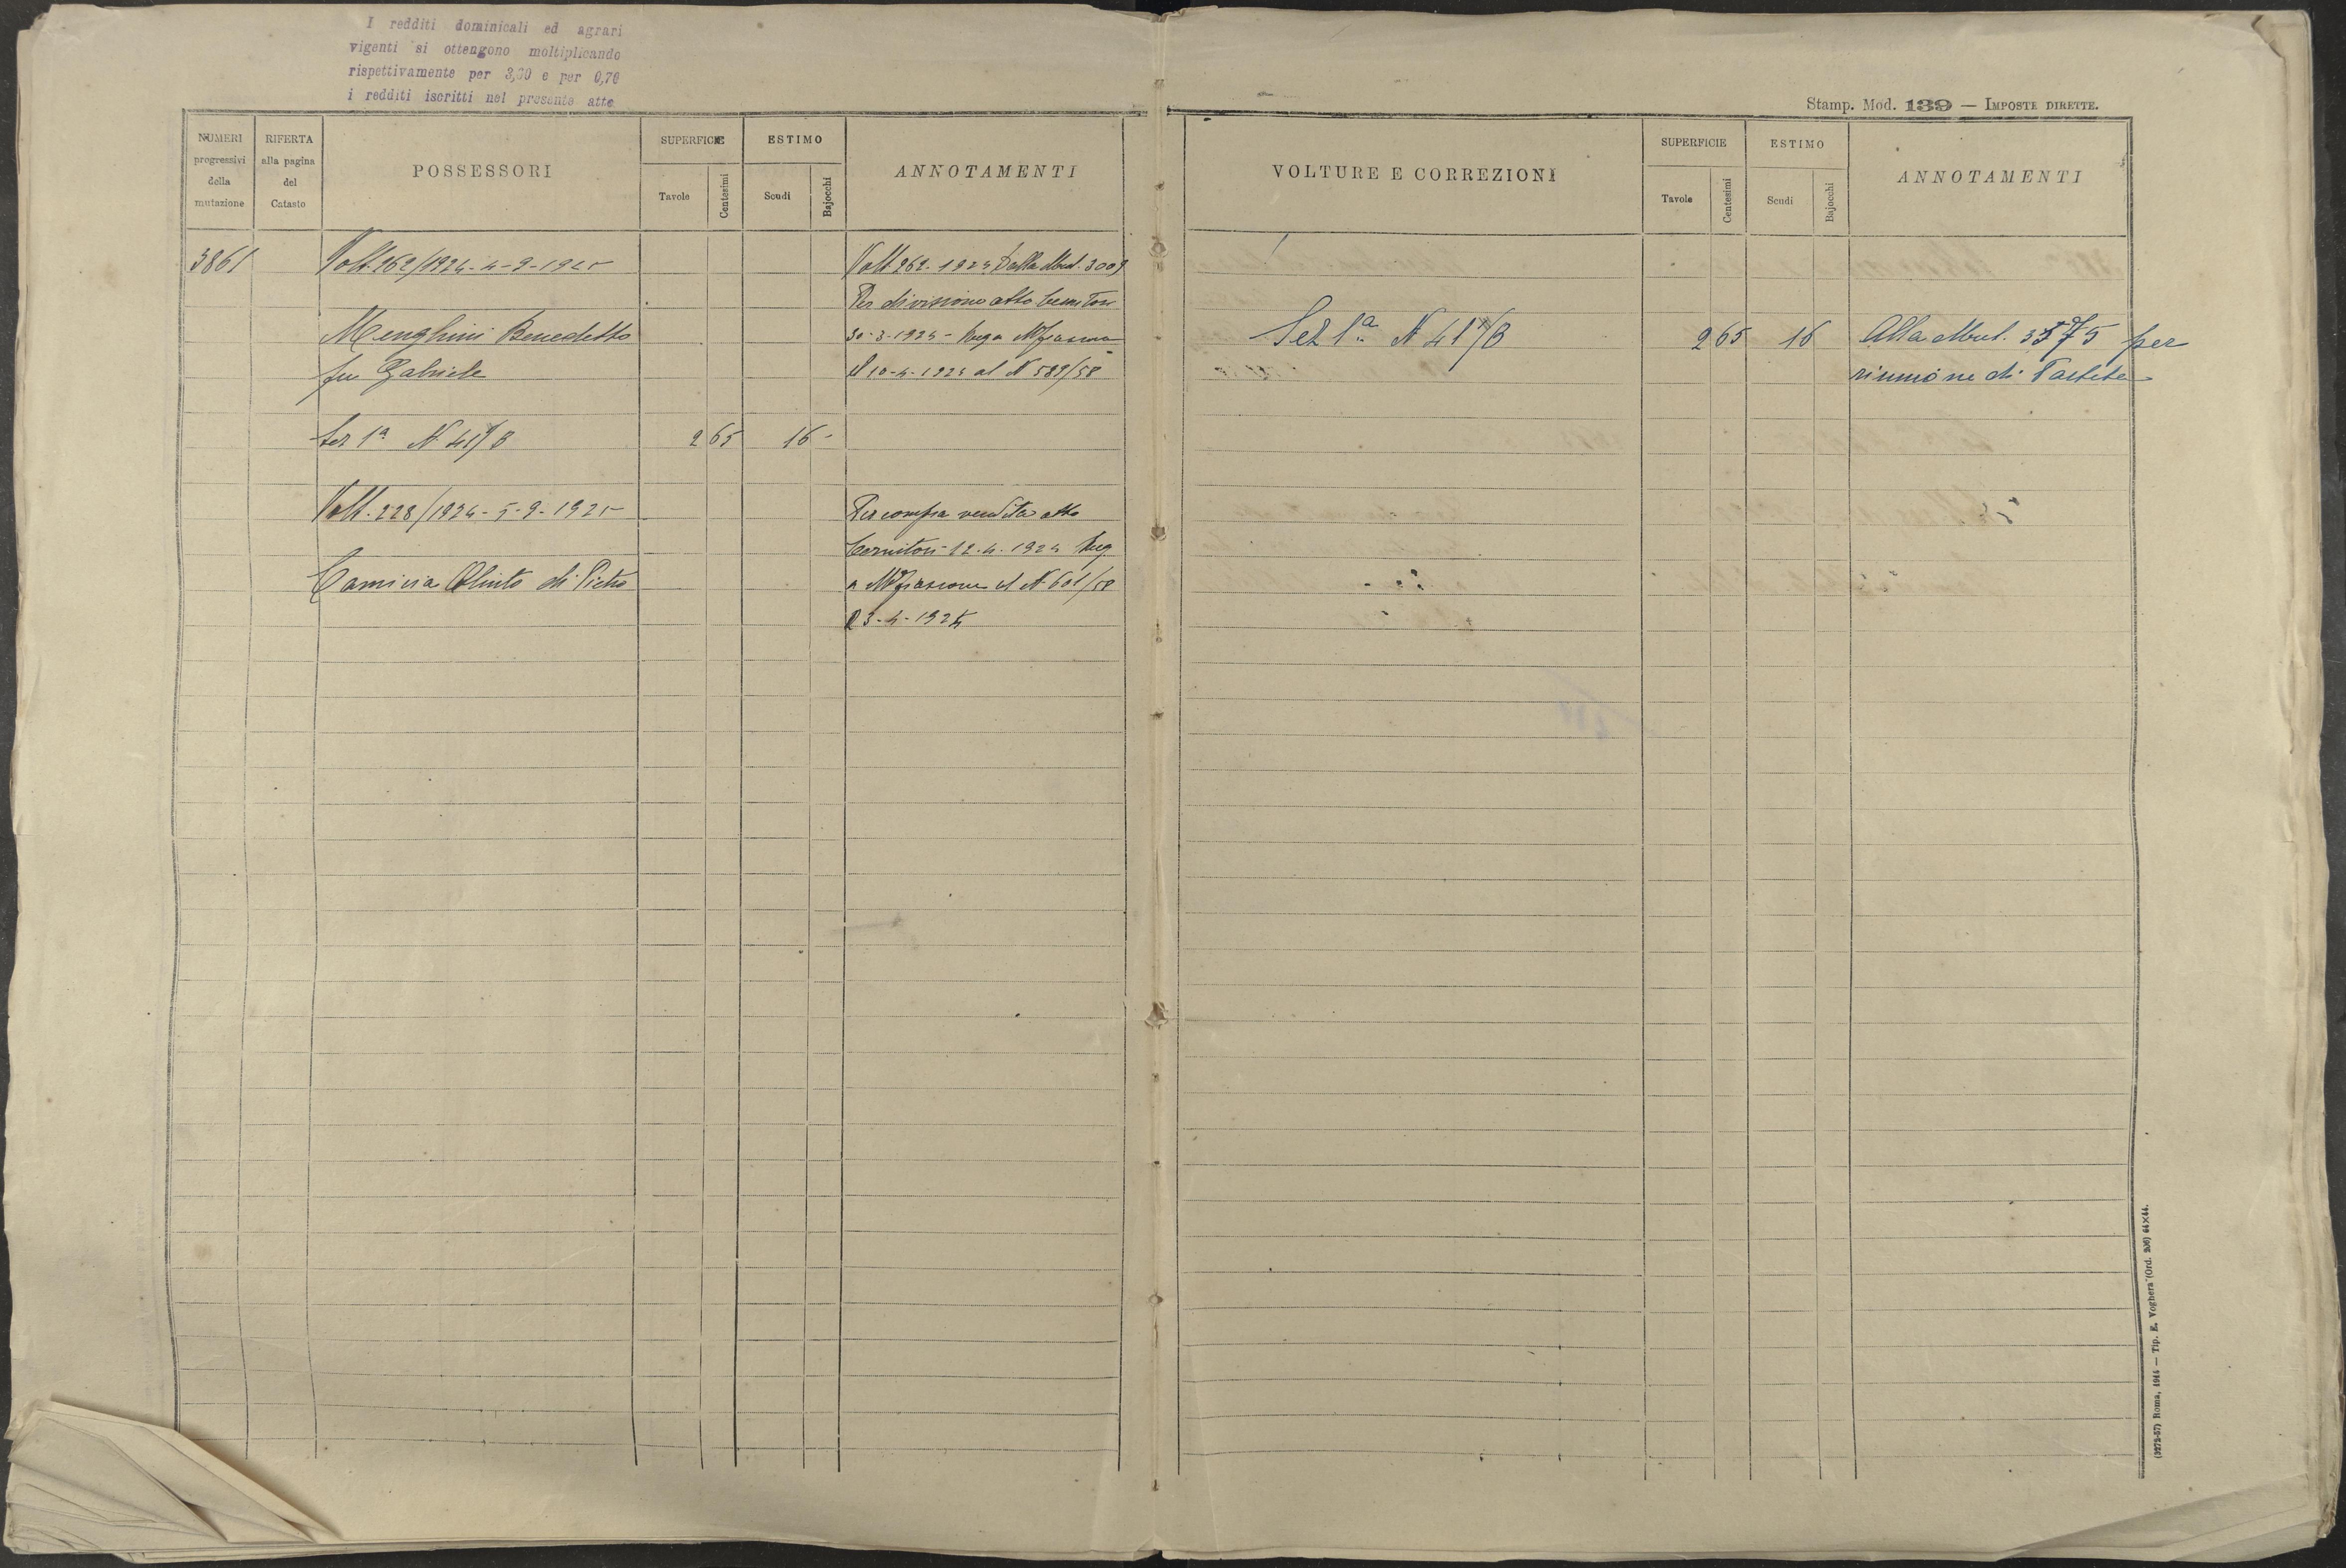 I redditi dominicali ed agrari
vigenti si ottengono moltiplicando
rispettivamente per 3,70 e per 0,76
i redditi iscritti nel presente atto.
Stamp. Mod. 139 — IMPOSTE DIRETTE.
NUMERI progressivi della mutazione
RIFERTA alla pagina del Catasto
POSSESSORI
SUPERFICIE
Tavole
Centesimi
ESTIMO
Scudi
Bajocchi
ANNOTAMENTI
3861
Volt. 262/1924 - 4-9-1925
Volt 262 - 1924 Dalla Mut. 3009
Per divisione atto
Menghini Benedetto
30-3-1924 -
fu Gabriele
il 10-4-1924 al N 589/58
Sez 1ª N 41 /B
2 65
16 -
Volt. 228/1924 - 5-9-1925
Per compra vendita atto
12.4.1924 Reg.
Camicia Olinto di Pietro
a al N 601/58
23-4-1924
VOLTURE E CORREZIONI
SUPERFICIE
Tavole
Centesimi
ESTIMO
Scudi
Bajocchi
ANNOTAMENTI
Sez 1ª N 41 /B
2 65
16
Alla Mut. 3575 per
riunione di Partite
(3272-57) Roma, 1914 — Tip. E. Voghera (Ord. 200) 64×44.